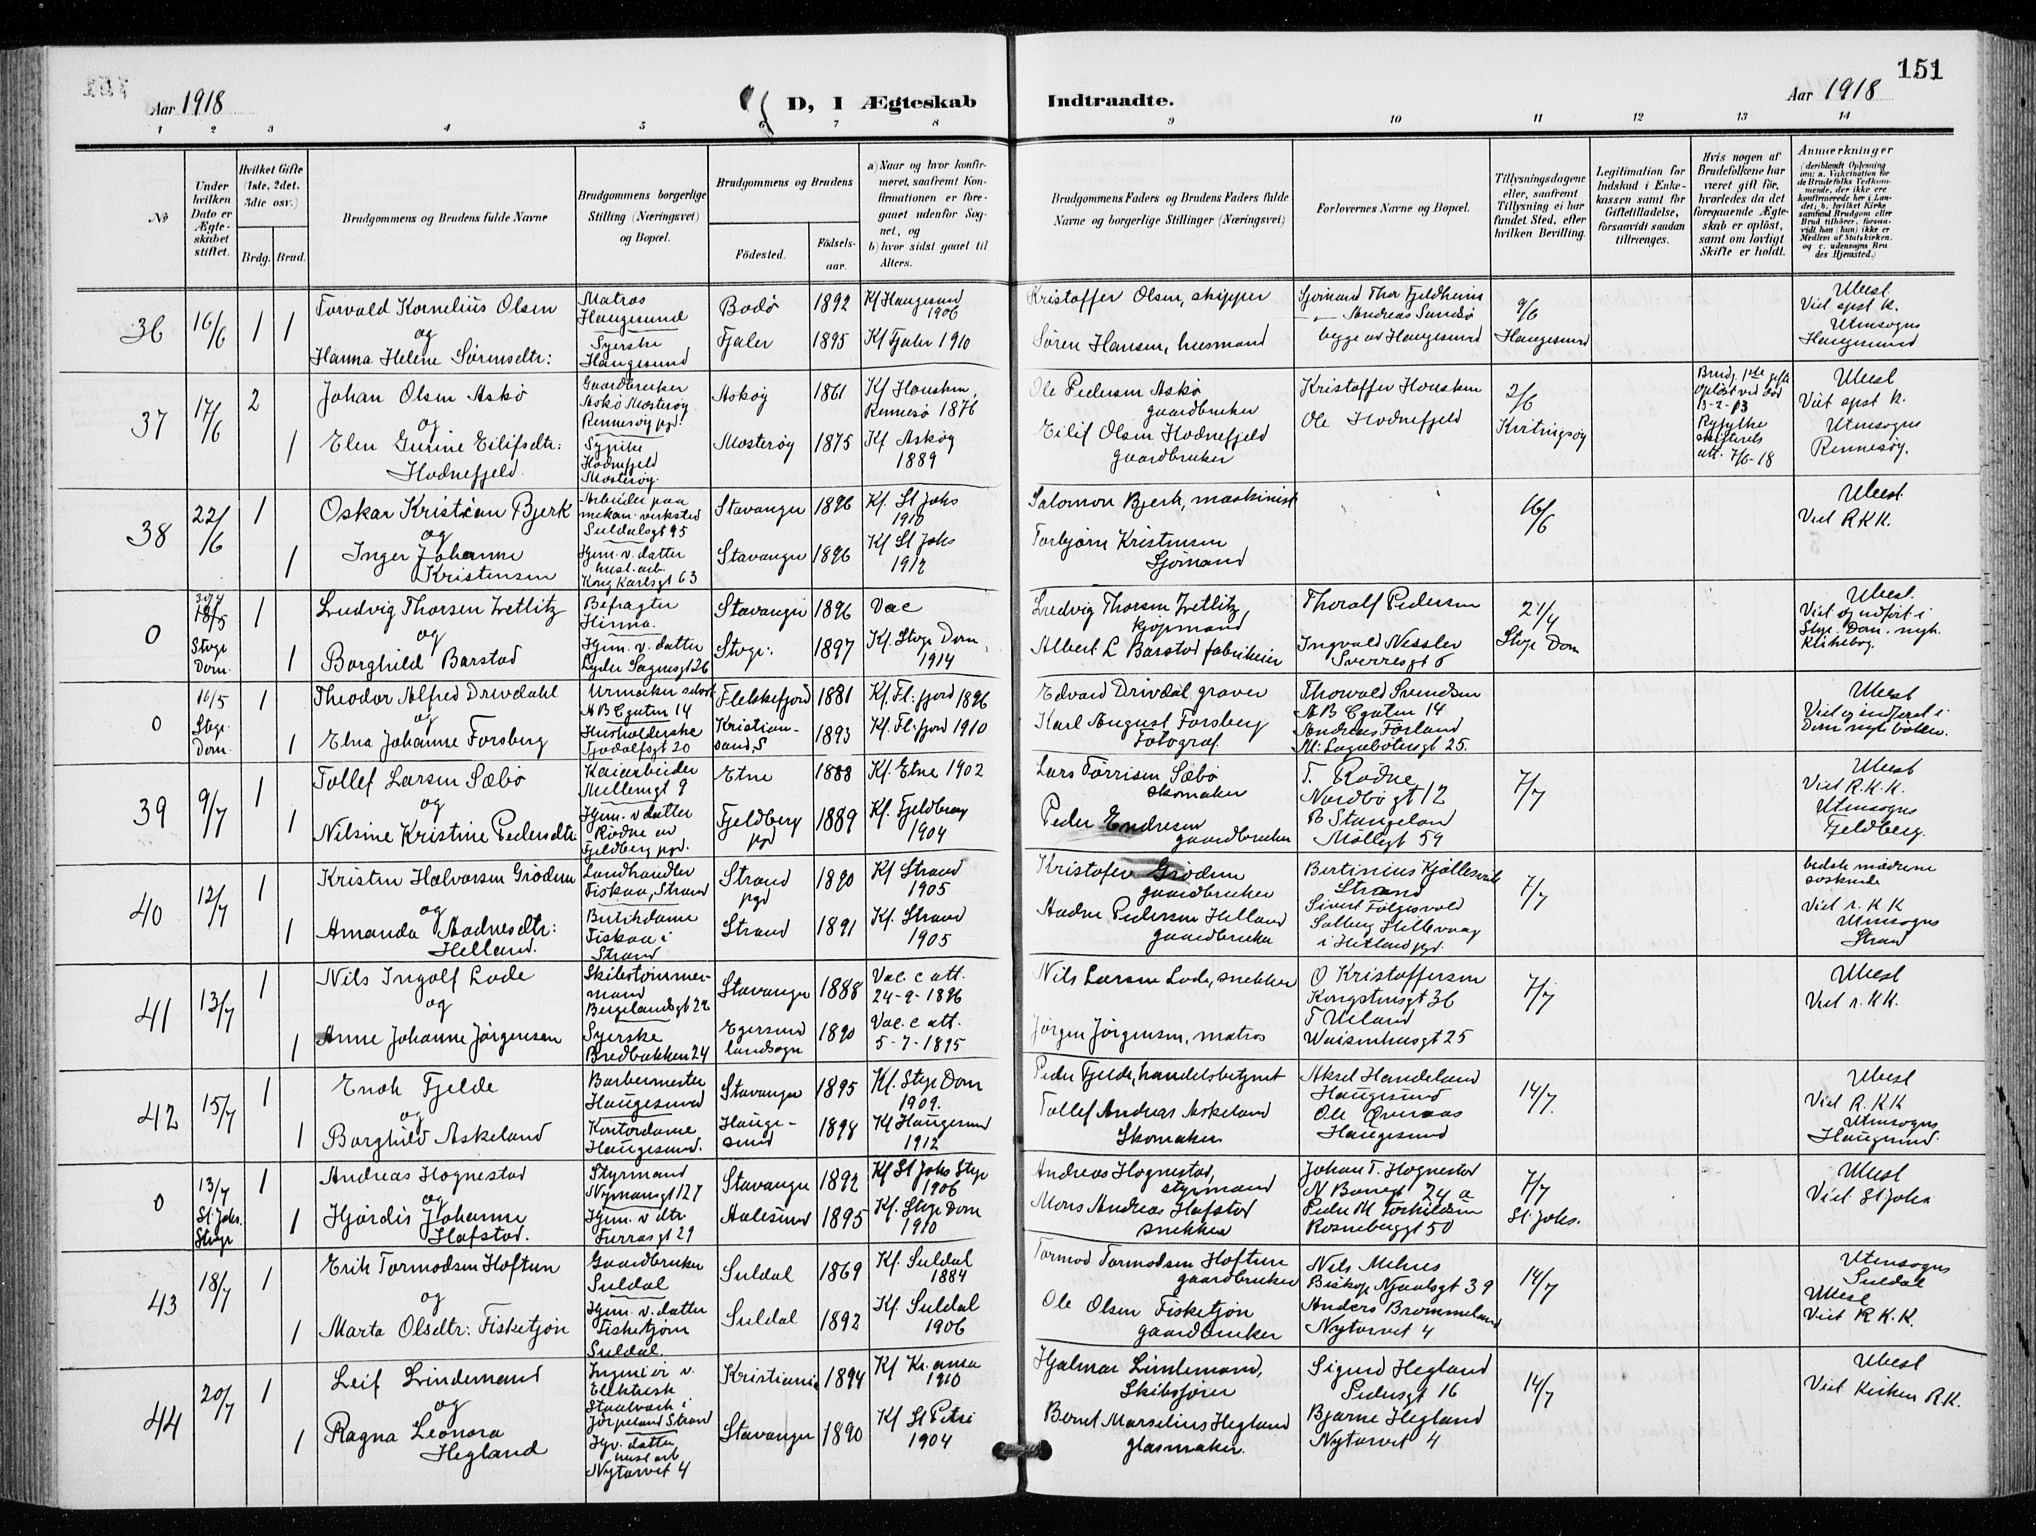 151
Aar 1918
D, I Ægteskab
Indtraadte.
Aar 1918
1 2 3 4 5 6 7 8 9 10 11 12 13 14
No
Under hvilken Dato er Ægteskabet stiftet.
Hvilket Gifte (1ste, 2det, 3die osv.)
Brdg. Brud.
Brudgommens og Brudens fulde Navne
Brudgommens borgerlige Stilling (Næringsvei) og Bopæl.
Brudgommens og Brudens
Fødested.
Fødselsaar.
a) Naar og hvor konfirmeret, saafremt Konfirmationen er foregaaet udenfor Sognet, og
b) hvor sidst gaaet til Alters.
Brudgommens Faders og Brudens Faders fulde Navne og borgerlige Stillinger (Næringsvei)
Forlovernes Navne og Bopæl.
Tillysningsdagene eller, saafremt Tillysning ei har fundet Sted, efter hvilken Bevilling.
Legitimation for Indskud i Enkekassen samt for Giftetilladelse, forsaavidt saadan tiltrænges.
Hvis nogen af Brudefolkene har været gift før, hvorledes da det foregaaende Ægteskab er opløst, samt om lovligt Skifte er holdt.
Anmærkninger
(deriblandt Oplysning om: a. Vakcination for de Brudefolks Vedkommende, der ikke ere konfirmerede her i Landet, b. hvilket Kirkesamfund Brudgom eller Brud tilhører, forsaavidt han (hun) ikke er Medlem af Statskirken, og c. udensogns Brudes Hjemsted.)
36
16/6
1 1
Torvald Kornelius Olsen
og
Hanna Helene Sørensdtr:
Matros
Haugesund
Syerske
Haugesund
Bodø 1892 Kf Haugesund 1906
Fjaler 1895 Kf Fjaler 1910
Kristoffer Olsen, skipper
Søren Hansen, husmand
Sjømand Thor Fjeldheim
Andreas Sundsø
begge av Haugesund
9/6
Haugesund
Ubesl.
Viet spst k.
Utensogns
Haugesund
37
17/6
2 1
Johan Olsen Askø
og
Elen Gurine Eilifsdtr:
Hodnefjeld
Gaardbruker
Askø Mosterøy
Rennesøy pgd.
Sypike
Hodnefjeld
Mosterøy.
Askøy 1861 Kf Hausken, Rennesø 1876
Mosterøy 1875 Kf Askøy 1889
Ole Pedersen Askø
gaardbruker
Eilif Olsen Hodnefjeld
gaardbruker
Kristoffer Hausken
Ole Hodnefjeld
2/6
Kvitingsøy
Brudg. 1ste gifte
opløst ved død
13-2-13
Ryfylke
skifterets
att. 7/6-18
Ubesl
Viet spst k.
Utensogns
Rennesøy.
38
22/6
1 1
Oskar Kristian Bjerk
og
Inger Johanne
Kristensen
Arbeider paa
mekan. verksted
Suldalsgt 95
Hjem. v. datter
husl. arb.
Kong Karlsgt 63
Stavanger 1896 Kf. St Johs 1910
Stavanger 1896 Kf St Johs 1912
Salomon Bjerk, maskinist
Torbjørn Kristensen
Sjømand
16/6
Ubesl.
Viet R.K.K.
0
18/5
Stvgr
Dom.
1 1
Ludvig Thorsen Zetlitz
og
Borghild Barstad
Befragter
Hinna.
Hjem. v. datter
Lyder Sagensgt 26
Stavanger 1896 Vac
Stvgr. 1897 Kf. Stvgr Dom. 1914
Ludvig Thorsen Zetlitz,
kjøpmand
Albert L Barstad fabrikeier
Thoralf Pedersen
Ingvald Nessler
Sverresgt 6
21/4
Stvgr Dom
Ubesl.
Viet og indført i
Stvgr. Dom. mgh.
Kirkebog.
0
16/5
Stvgr.
Dom.
1 1
Theodor Alfred Drivdahl
og
Elna Johanne Forsberg
Urmaker selvst.
A B C gaten 14
Husholderske
Tjodolfsgt 20
Flekkefjord 1881 Kf. Fl:fjord 1896
Kristiansand, S 1893 Kf. Fl:fjord 1910
Edvard Drivdal graver
Karl August Forsberg
Fotograf.
Thorvald Svendsen
A B C gaten 14
Andreas Førland
M: Lagabøtersgt 25.
Ubesl
Viet og indført i
Dom. mgh. boken.
39
9/7
1 1
Tollef Larsen Sæbø
og
Nilsine Kristine Pedersdtr:
Kaiarbeider
Mellemgt 9
Hjem. v datter
Rødne
Fjeldberg pgd.
Etne 1888 Kf. Etne 1902
Fjeldberg pgd 1889 Kf. Fjeldberg 1904
Lars Tørrisen Sæbø
skomaker
Peder Endresen
gaardbruker
T. Rødne
Nordbøgt 12
B Stangeland
Møllegt 59
7/7
Ubesl
Viet R.K.K.
Utensogns
Fjeldberg.
40
12/7
1 1
Kristen Halvorsen Grødem
og
Amanda Aadnesdtr:
Helland.
Landhandler
Fiskaa, Strand
Butikdame
Fiskaa i
Strand
Strand pgd 1890 Kf Strand 1905
Strand 1891 Kf. Strand 1905
Kristofer Grødem
gaardbruker
Aadne Pedersen Helland
gaardbruker
Bertinius Kjøllesvik
Strand
Sivert Følgesvold
Solberg Hillevaag
i Hetland pgd.
7/7
bedste mødrene
søskende
Viet r. K K
Utensogns
Strand
41
13/7
1 1
Nils Ingolf Lode
og
Anne Johanne Jørgensen
Skibstømmermand
Bergelandsgt 22
Syerske
Bredbakken 24
Stavanger 1888 Vac c att. 24-9-1896
Egersund landsogn 1890 Vac. c att. 5-7-1895
Nils Larsen Lode, snekker
Jørgen Jørgensen, matros
O Kristoffersen
Kongstensgt 36
T Ueland
Waisenhusgt 25
7/7
Ubesl
Viet r. K.K.
42
15/7
1 1
Enok Fjelde
og
Borghild Askeland
Barbermester
Haugesund
Kontordame
Haugesund.
Stavanger 1895 Kf. Stvgr Dom 1909.
Haugesund 1894 Kf Haugesund 1912
Peder Fjelde, handelsbetjent
Tollef Andreas Askeland
Skomaker
Aksel Handeland
Haugesund
Ole
Haugesund
14/7.
Ubesl
Viet R.K K
Utensogns
Haugesund
0
13/7
St. Johs.
Stvgr
1 1
Andreas Hognestad
og
Hjørdis Johanne
Hafstad.
Styrmand
Nymansgt 127
Hjem. v dtr.
Furrasgt 29
Stavanger 1892 Kf St Johs Stvgr 1906
Aalesund 1895 Kf. Stvgr Dom 1910
Andreas Hognestad,
styrmand
Mons Andreas Hafstad
snekker
Johan T. Hognestad
N Banegt 24 a
Peder M Torkildsen
Rosenberggt 50
7/7
St. Johs.
Ubesl
Viet St Johs
43
18/7
1 1
Erik Tormodsen Hoftun
og
Marta Olsdtr: Fisketjøn
Gaardbruker
Suldal
Hjem. v. datter
Fisketjøn
Suldal.
Suldal 1869 Kf. Suldal 1884
Suldal 1892 Kf. Suldal 1906
Tormod Tormodsen Hoftun
gaardbruker
Ole Olsen Fisketjøn
gaardbruker
Nils Mehus
Biskop Njaalsgt 39
Anders Brommeland
Nytorvet 4
14/7
Utensogns
Suldal
Ubesl
Viet R.K.K.
44
20/7
1 1
Leif Lindemand
og
Ragna Leonora
Hegland
Ingeniør v.
Elektrisk
Staalverk i
Jørpeland Strand
Hjv. datter
husl arb
Nytorvet 4
Kristiania 1894 Kf Kr.ania 1910
Stavanger 1890 Kf St Petri 1904
Hjalmar Lindemand,
Skibsfører
Bernt Marselius Hegland
glasmaker.
Sigurd Hegland
Pedersgt 16
Bjarne Hegland
Nytorvet 4
14/7
Ubesl
Viet Kirken R.K.